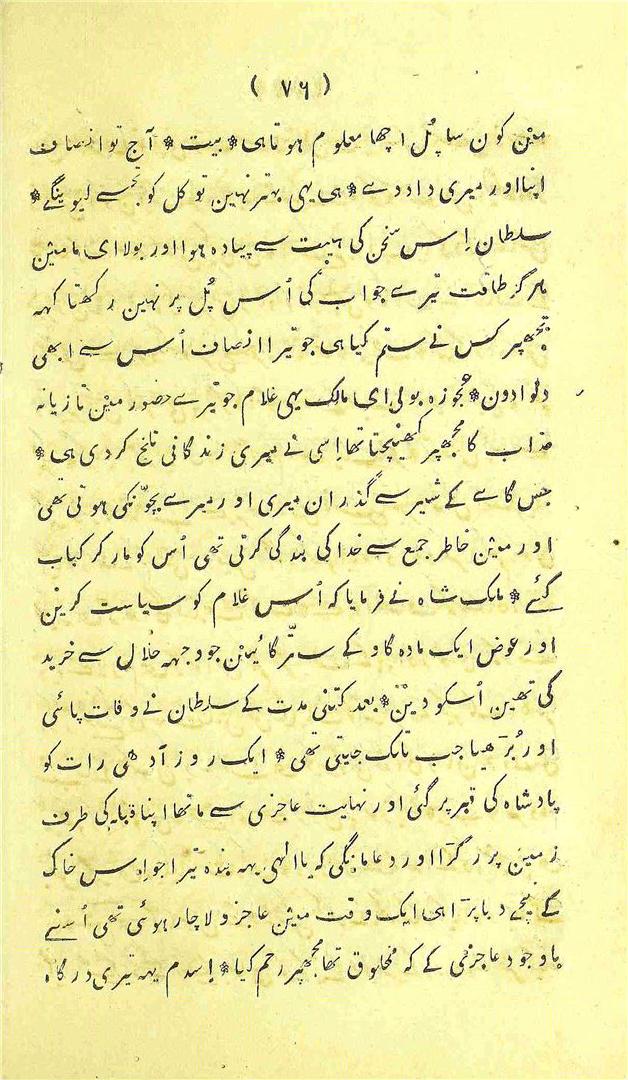 ( ٧٦ )
مین کون سا پُل اچھا معلوم ہوتا ہی * بیت * آج تو انصاف
اپنا اور میری داد دے * ہی یہی بہتر نہین تو کل کو تجسے لیوینگے *
سلطان اِس سخن کی ہیبت سے پیادہ ہوا اور بولا ای ما مین
ہرگز طاقت تیرے جواب کی اُس پُل پر نہین رکھتا کہہ
تجھپر کس نے ستم کیا ہی جو تیرا انصاف اُس سے ابھی
دلوادون * عجوزہ بولی ای مالک یہی غلام جو تیرے حضور مین تازیانہ
عذاب کا مجھپر کھینچتا تھا اِسی نے میری زندگانی تلخ کردی ہی *
جس گاے کے شیر سے گذران میری اور میرے بچونکی ہوتی تھی
اور مین خاطر جمع سے خدا کی بندگی کرتی تھی اُس کو مار کر کباب
کئے * ملک شاہ نے فرمایا کہ اُس غلام کو سیاست کرین
اور عوض ایک مادہ گاو کے ستّر گائین جو وجہہ حلال سے خرید
کی تھین اُسکو دین * بعد کتنی مدت کے سلطان نے وفات پائی
اور بُڑھیا جب تلک جیتی تھی * ایک روز آدھی رات کو
پادشاہ کی قبر پر گئی اور نہایت عاجزی سے ماتھا اپنا قبلہ کی طرف
زمین پر رگڑا اور دعا مانگی کہ یا الٰہی یہہ بندہ تیرا جو اِس خاک
کے نیچے دبا پڑا ہی ایک وقت مین عاجز و لاچار ہوئی تھی اُسنے
باوجود عاجزی کے کہ مخلوق تھا مجھپر رحم کیا * اِسدم یہہ تیری درگاہ